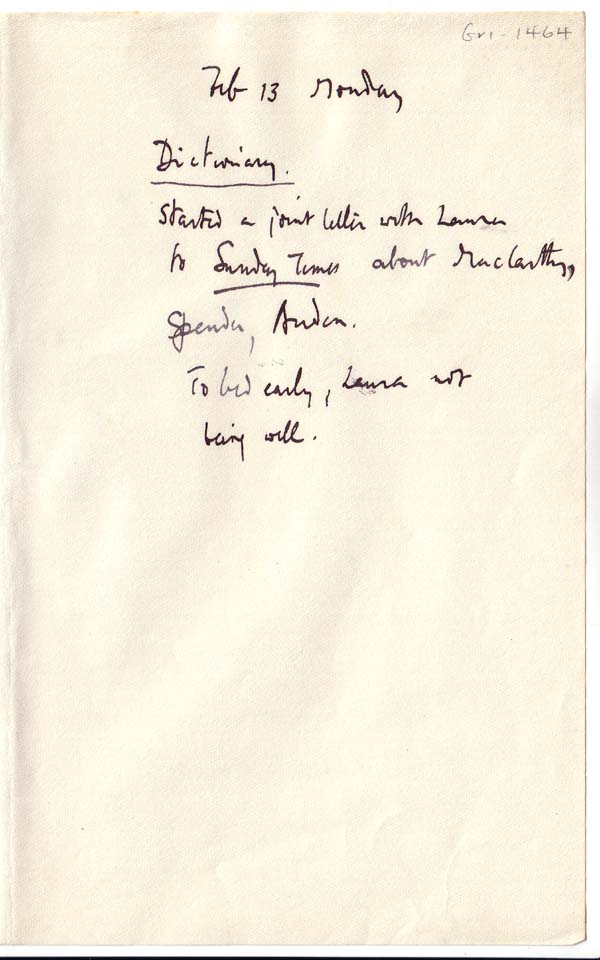 Gri-1464
Feb 13 Monday
Dictionary.
Started a joint letter with Laura
to Sunday Times about MacCarthy,
Spender, Auden.
To bed early, Laura not
being well.